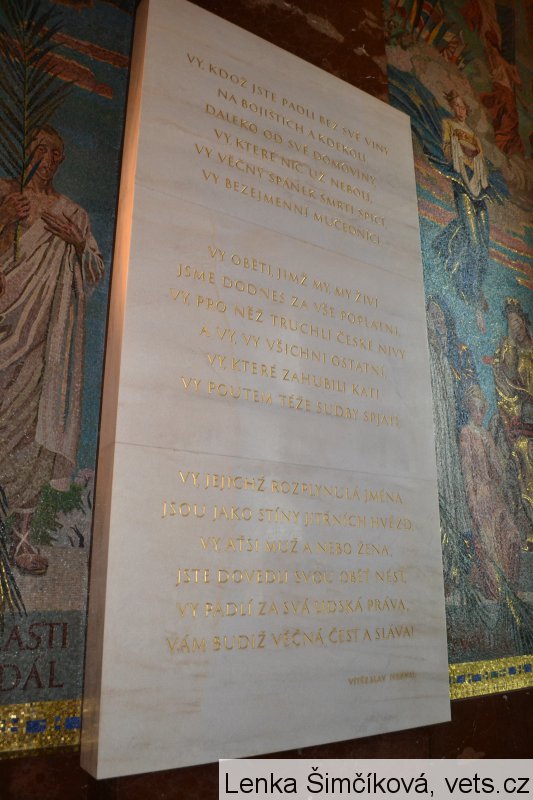 VY, KDOŽ JSTE PADLI BEZ SVÉ VINY
NA BOJIŠTÍCH A KDEKOLI,
DALEKO OD SVÉ DOMOVINY,
VY, KTERÉ NIC UŽ NEBOLÍ,
VY, VĚČNÝ SPÁNEK SMRTI SPÍCÍ,
VY BEZEJMENNÍ MUČEDNÍCI.
VY OBĚTI, JIMŽ MY, MY ŽIVÍ,
JSME DODNES ZA VŠE POPLATNI,
VY, PRO NĚŽ TRUCHLÍ ČESKÉ NIVY
A VY, VY VŠICHNI OSTATNÍ,
VY, KTERÉ ZAHUBILI KATI,
VY POUTEM TÉŽE SUDBY SPJATI.
VY, JEJICHŽ ROZPLYNULÁ JMÉNA
JSOU JAKO STÍNY JITŘNÍCH HVĚZD,
VY, AŤSI MUŽ A NEBO ŽENA,
JSTE DOVEDLI SVOU OBĚŤ NÉST,
VY PADLÍ ZA SVÁ LIDSKÁ PRÁVA,
VÁM BUDIŽ VĚČNÁ ČEST A SLÁVA!
VÍTĚZSLAV NEZVAL
ASTI
DÁL
Lenka Šimčíková, vets.cz